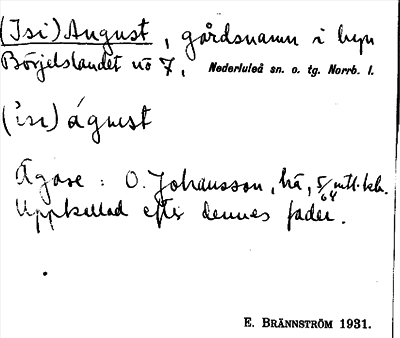 (Isi) August, gårdsnamn i byn
Börjelslandet no 7, Nederluleå sn. o. tg. Norrb. l.
(ìsi) águst
Ägare: O. Johansson, hä, 5/64 mtl. kb.
Uppkallad efter dennes fader.
E. BRÄNNSTRÖM 1931.